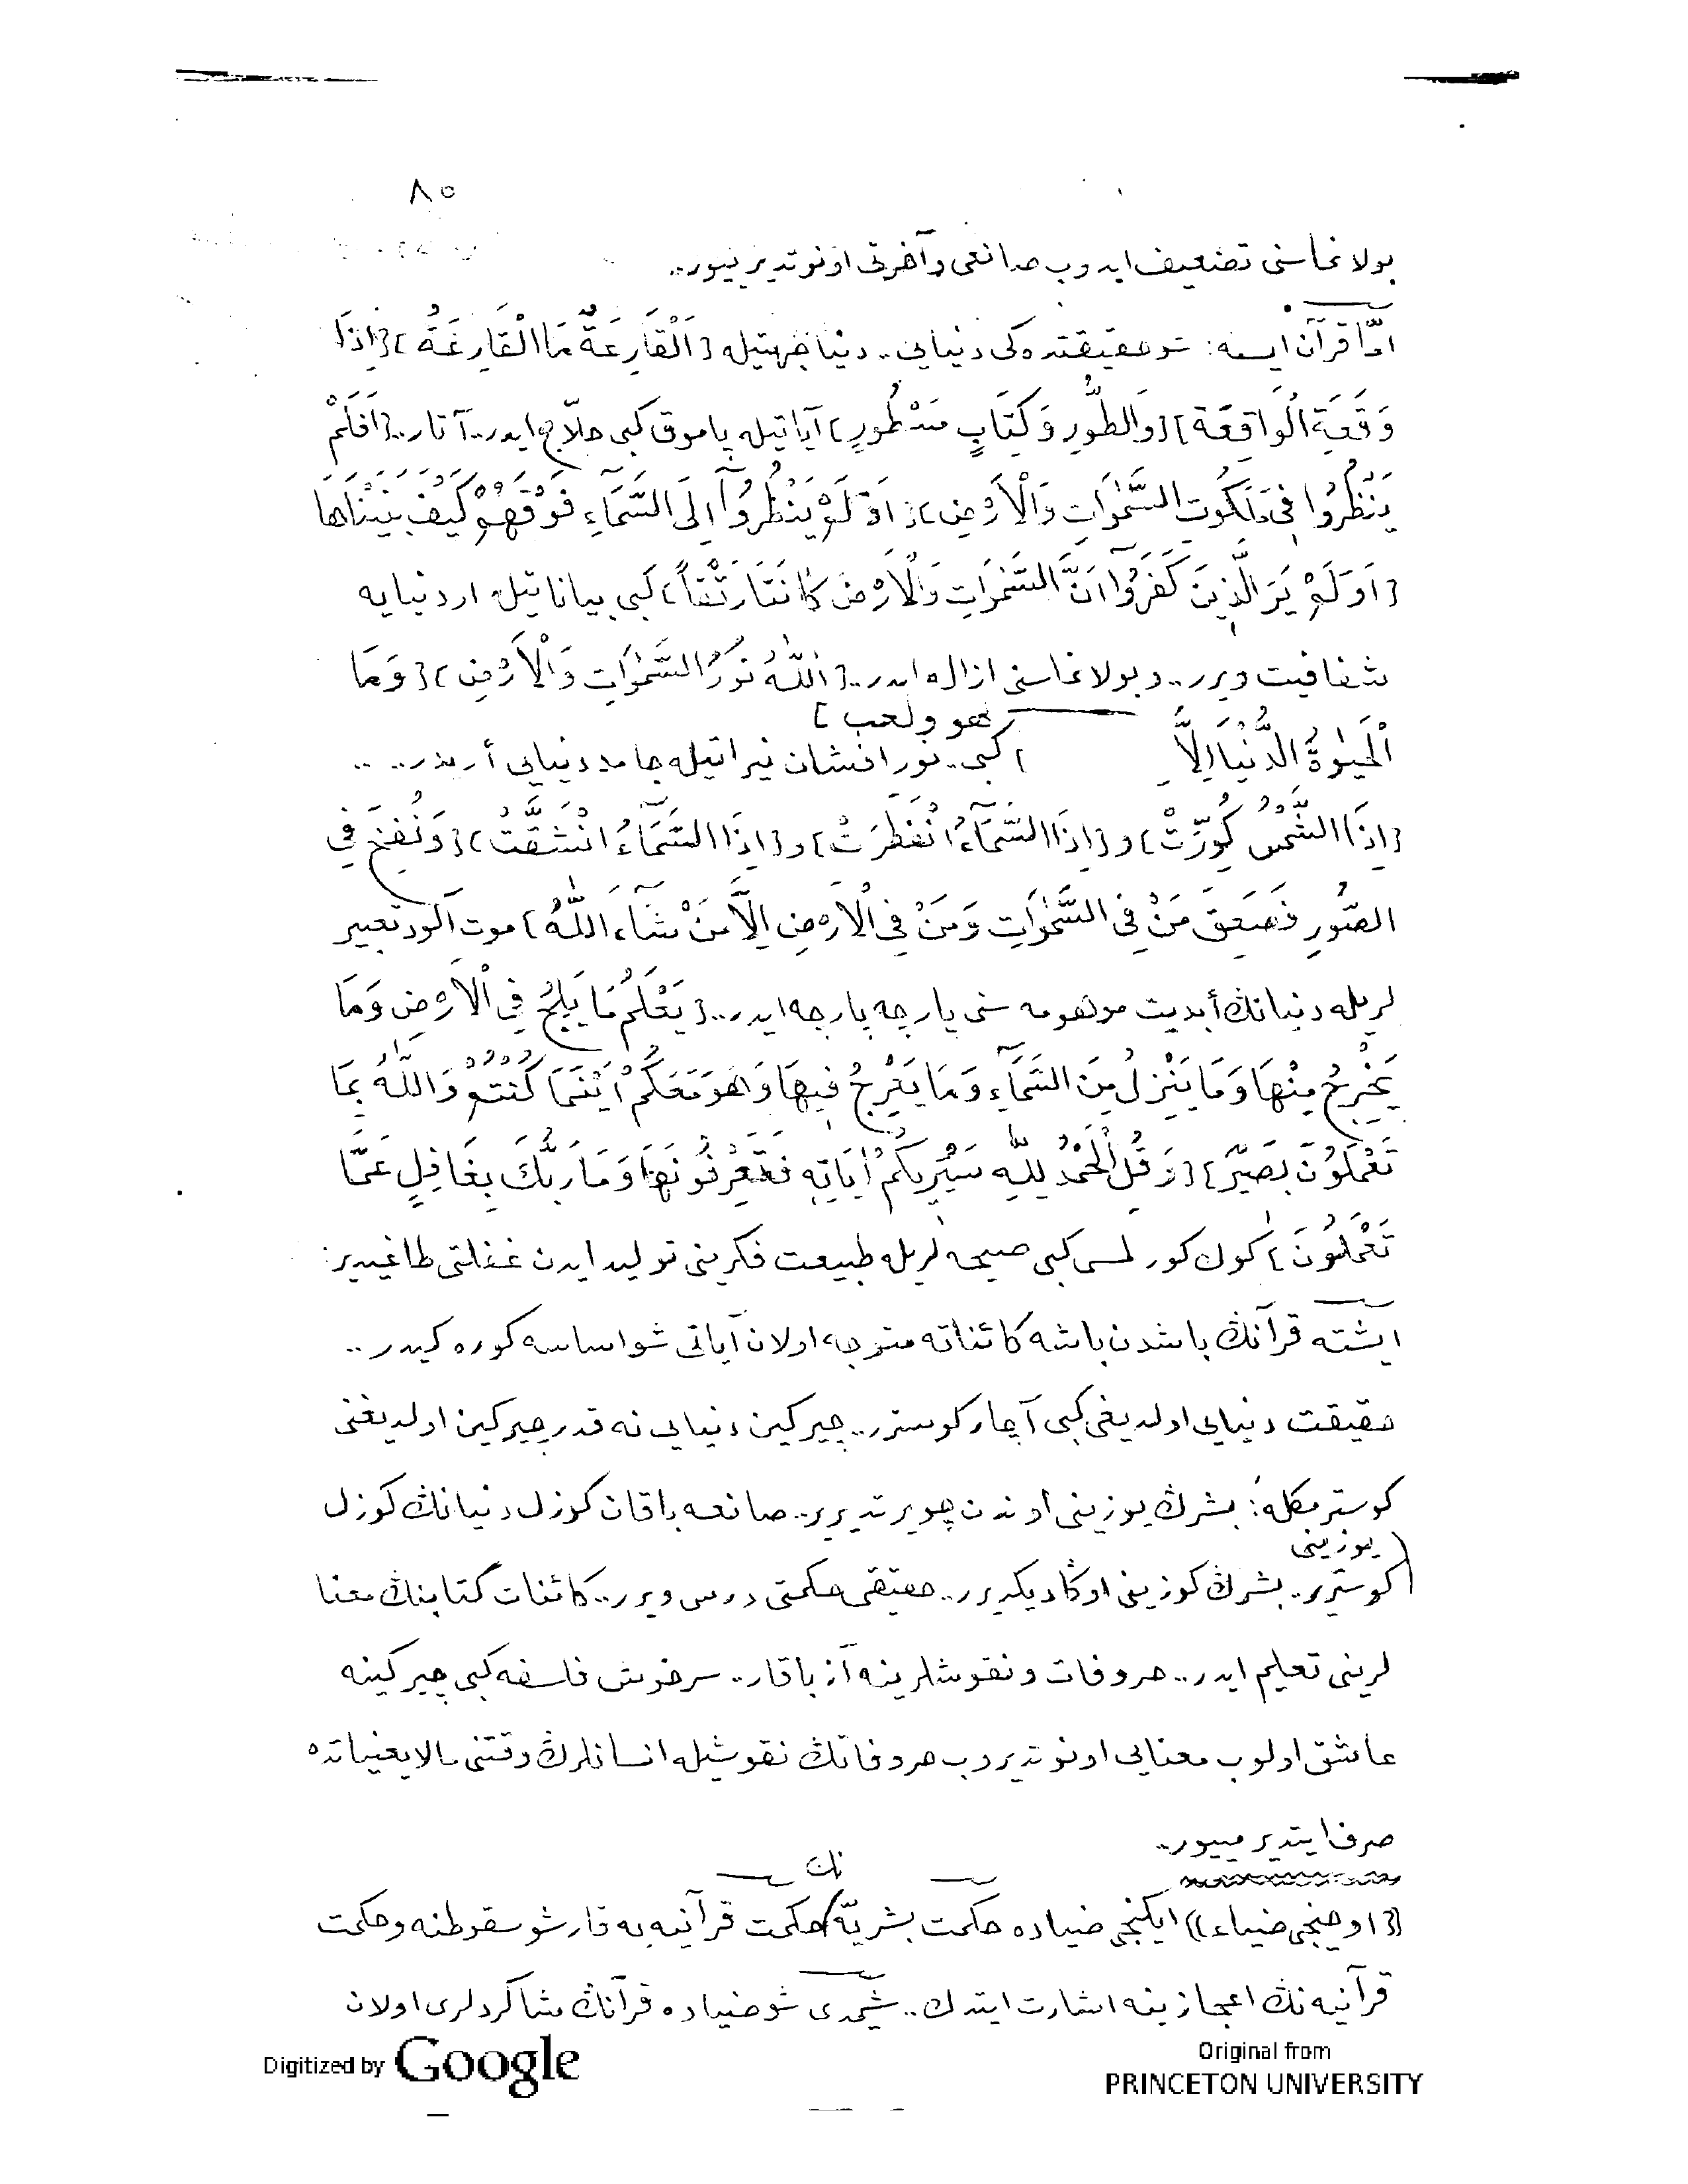 ٨٥
بولانماسنى تضعيف ايدوب صانعى وآخرتى اونوتديرييور..
امّا قرآن ايسه: شو حقيقتده كى دنيايى.. دنيا جهتيله [اَلْقَارِعَةُ مَا الْقَارِعَةُ] [اِذَا
وَقَعَةِ الْوَاقِعَة] [وَالطُّورِ وَكِتَابٍ مَسْطُورٍ] آياتيله پاموق كبى حلاّج ايدر.. آتار.. [اَفَلَمْ
يَنْظُرُوا فِى مَلَكُوتِ السَّمٰوَاتِ وَالْاَرْضِ] [اَوَ لَمْ يَنْظُرُوٓا اِلَى السَّمَٓاءِ فَوْقَهُمْ كَيْفَ بَنَيْنَاهَا
[اَوَلَمْ يَرَ الَّذِينَ كَفَرُوا اَنَّ السَّمٰوَاتِ وَالْاَرْضَ كَانَتَا رَتْقاً] كبى بياناتيله او دنيايه
شفافيت ويرر.. وبولانماسنى ازاله ايدر.. [اَللّٰهُ نُورُ السَّمٰوَاتِ وَالْاَرْضِ] [وَمَا
الْحَيٰوةُ الدُّنْيَا اِلاَّ لهو ولعب] كبى.. نورافشان نيراتيله جامد دنيايى أريدر.. ..
[اِذَا الشَّمْسُ كُوِّرَتْ] و [اِذَا السَّمَٓاءُ انْفَطَرَتْ] و [اِذَا السَّمَٓاءُ انْشَقَّتْ] [وَنُفِخَ فِى
الصُّورِ فَصَعِقَ مَنْ فِى السَّمٰوَاتِ وَمَنْ فِى الْاَرْضِ اِلاَّ مَنْ شَٓاءَ اللّٰهُ] موت آلود تعبير
لريله دنيانڭ أبديت موهومه سنى پارچه پارچه ايدر.. [يَعْلَمُ مَا يَلِجُ فِى الْاَرْضِ وَمَا
يَخْرُجُ مِنْهَا وَمَا يَنْزِلُ مِنَ السَّمَٓاءِ وَمَا يَعْرُجُ فِيهَا وَهُوَ مَعَكُمْ اَيْنَمَا كُنْتُمْ وَاللّٰهُ بِمَا
تَعْمَلُونَ بَصِيرٌ] [وَقُلِ الْحَمْدُ لِلّٰهِ سَيُرِيكُمْ اٰيَاتِهِ فَتَعْرِفُونَهَا وَمَا رَبُّكَ بِغَافِلٍ عَمَّا
تَعْمَلُونَ] كوك كورلمسى كبى صيحه لريله طبيعت فكرينى توليد ايدن غفلتى طاغيدير:
ايشته قرآنڭ باشدن باشه كائناته متوجه اولان آياتى شو اساسه كوره كيدر ..
حقيقت دنيايى اولديغى كبى آچار كوستر.. چيركين دنيايى نه قدر چيركين اولديغنى
كوسترمكله: بشرڭ يوزينى اوندن چويرتديرير.. صانعه باقان كوزل دنيانڭ كوزل
يوزينى
كوستيرر.. بشرڭ كوزينى اوڭا ديكديرر.. حقيقى حكمتى درس ويرر.. كائنات كتابنڭ معنا
لرينى تعليم ايدر.. حروفات و نقوشلرينه آز باقار.. سرخوش فلسفه كبى چيركينه
عاشق اولوب معنايى اونوتديروب حروفاتڭ نقوشيله انسانلرڭ وقتنى مالايعنياتده
صرف ايتديرمييور..
نك
((اوچنجى ضياء)) ايكنجى ضياده حكمت بشريّه حكمت قرآنيه يه قارشو سقوطنه وحكمت
قرآنيه نڭ اعجازينه اشارت ايتدك.. شيمدى شو ضياده قرآنڭ شاكردلرى اولان
Digitized by Google
Original from
PRINCETON UNIVERSITY